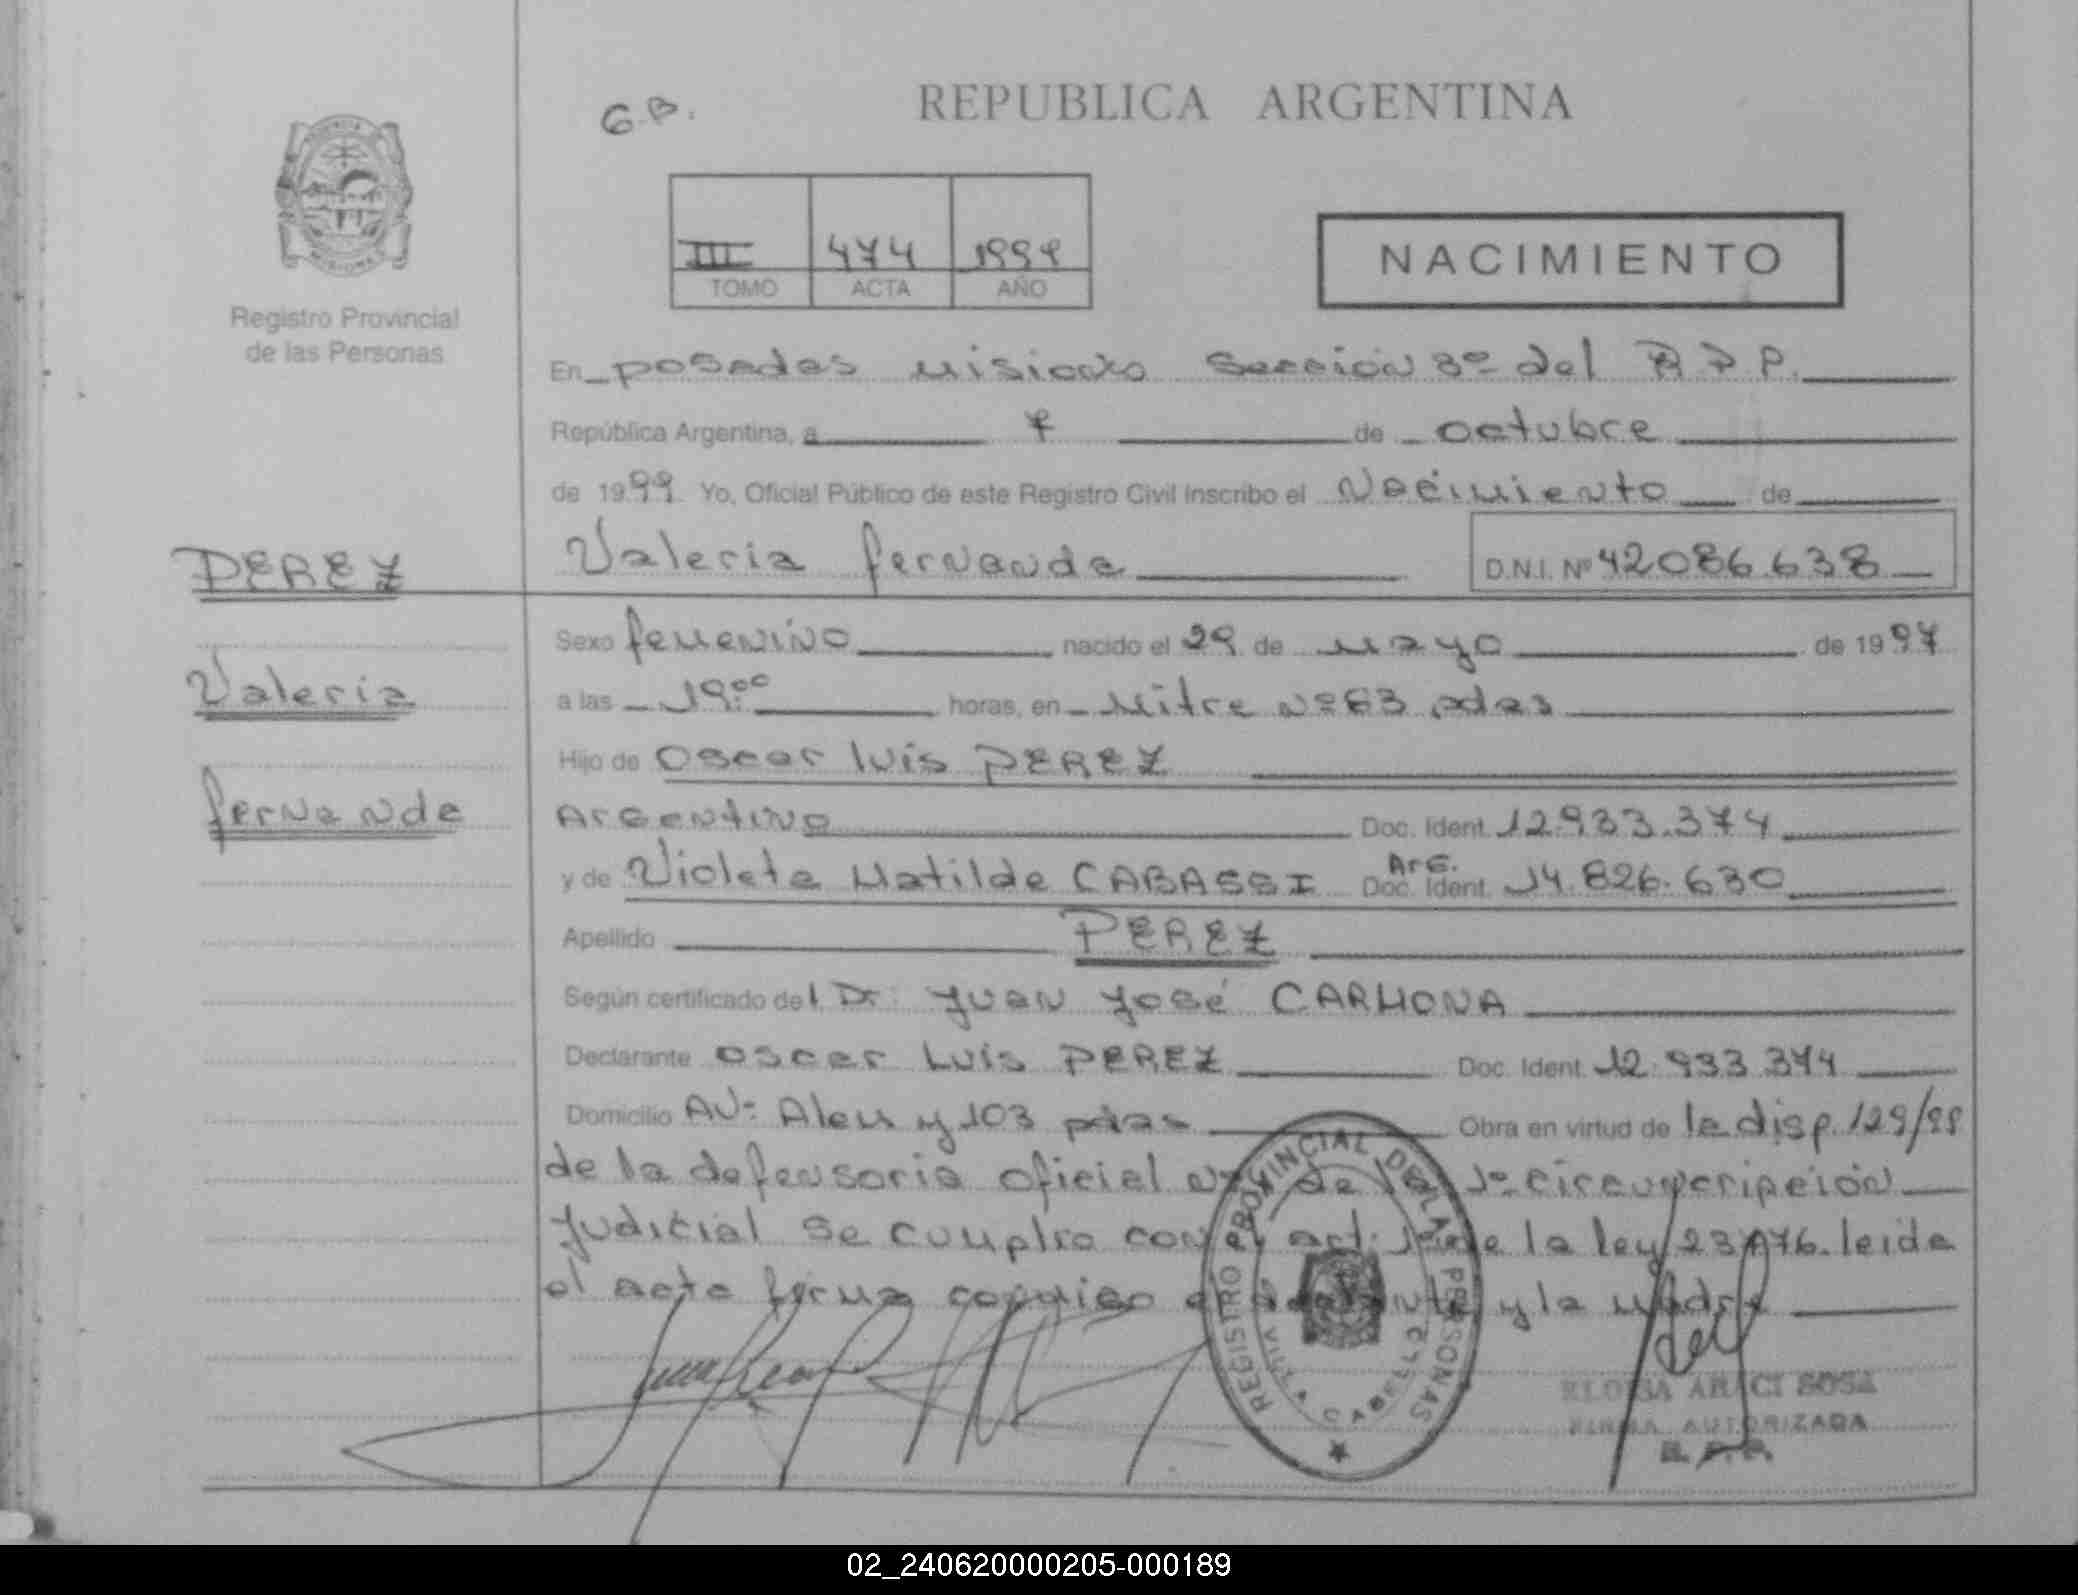 REPUBLICA ARGENTINA
G.B.
III 474 1999
TOMO ACTA AÑO
NACIMIENTO
Registro Provincial
de las Personas
En posadas Misiones Sección 3º del R P P.
República Argentina, a 7 de octubre
de 1999 Yo, Oficial Público de este Registro Civil inscribo el Nacimiento de
PEREZ
Valeria fernanda D.N.I. Nº 42086.638
Sexo femenino nacido el 29 de mayo de 1997
Valeria
a las 19:00 horas, en Mitre Nº 63 pdas
Hijo de Oscar Luis PEREZ
fernanda
Argentino Doc. Ident. 12.933.374
y de Violeta Matilde CABASSI Arg. Doc. Ident. 14.826.630
Apellido PEREZ
Según certificado del Dr: Juan José CARMONA
Declarante Oscar Luis PEREZ Doc. Ident. 12.933.374
Domicilio AV: Alem y 103 pdas Obra en virtud de la disp. 129/99
de la defensoria oficial de la 1º circunscripción
Judicial se cumplio con el art. de la ley 23.776. leida
el acta firma conmigo y la madre
REGISTRO PROVINCIAL DE LAS PERSONAS
CABELLO
ELOISA ARACI SOSA
FIRMA AUTORIZADA
R. P. P.
02_240620000205-000189